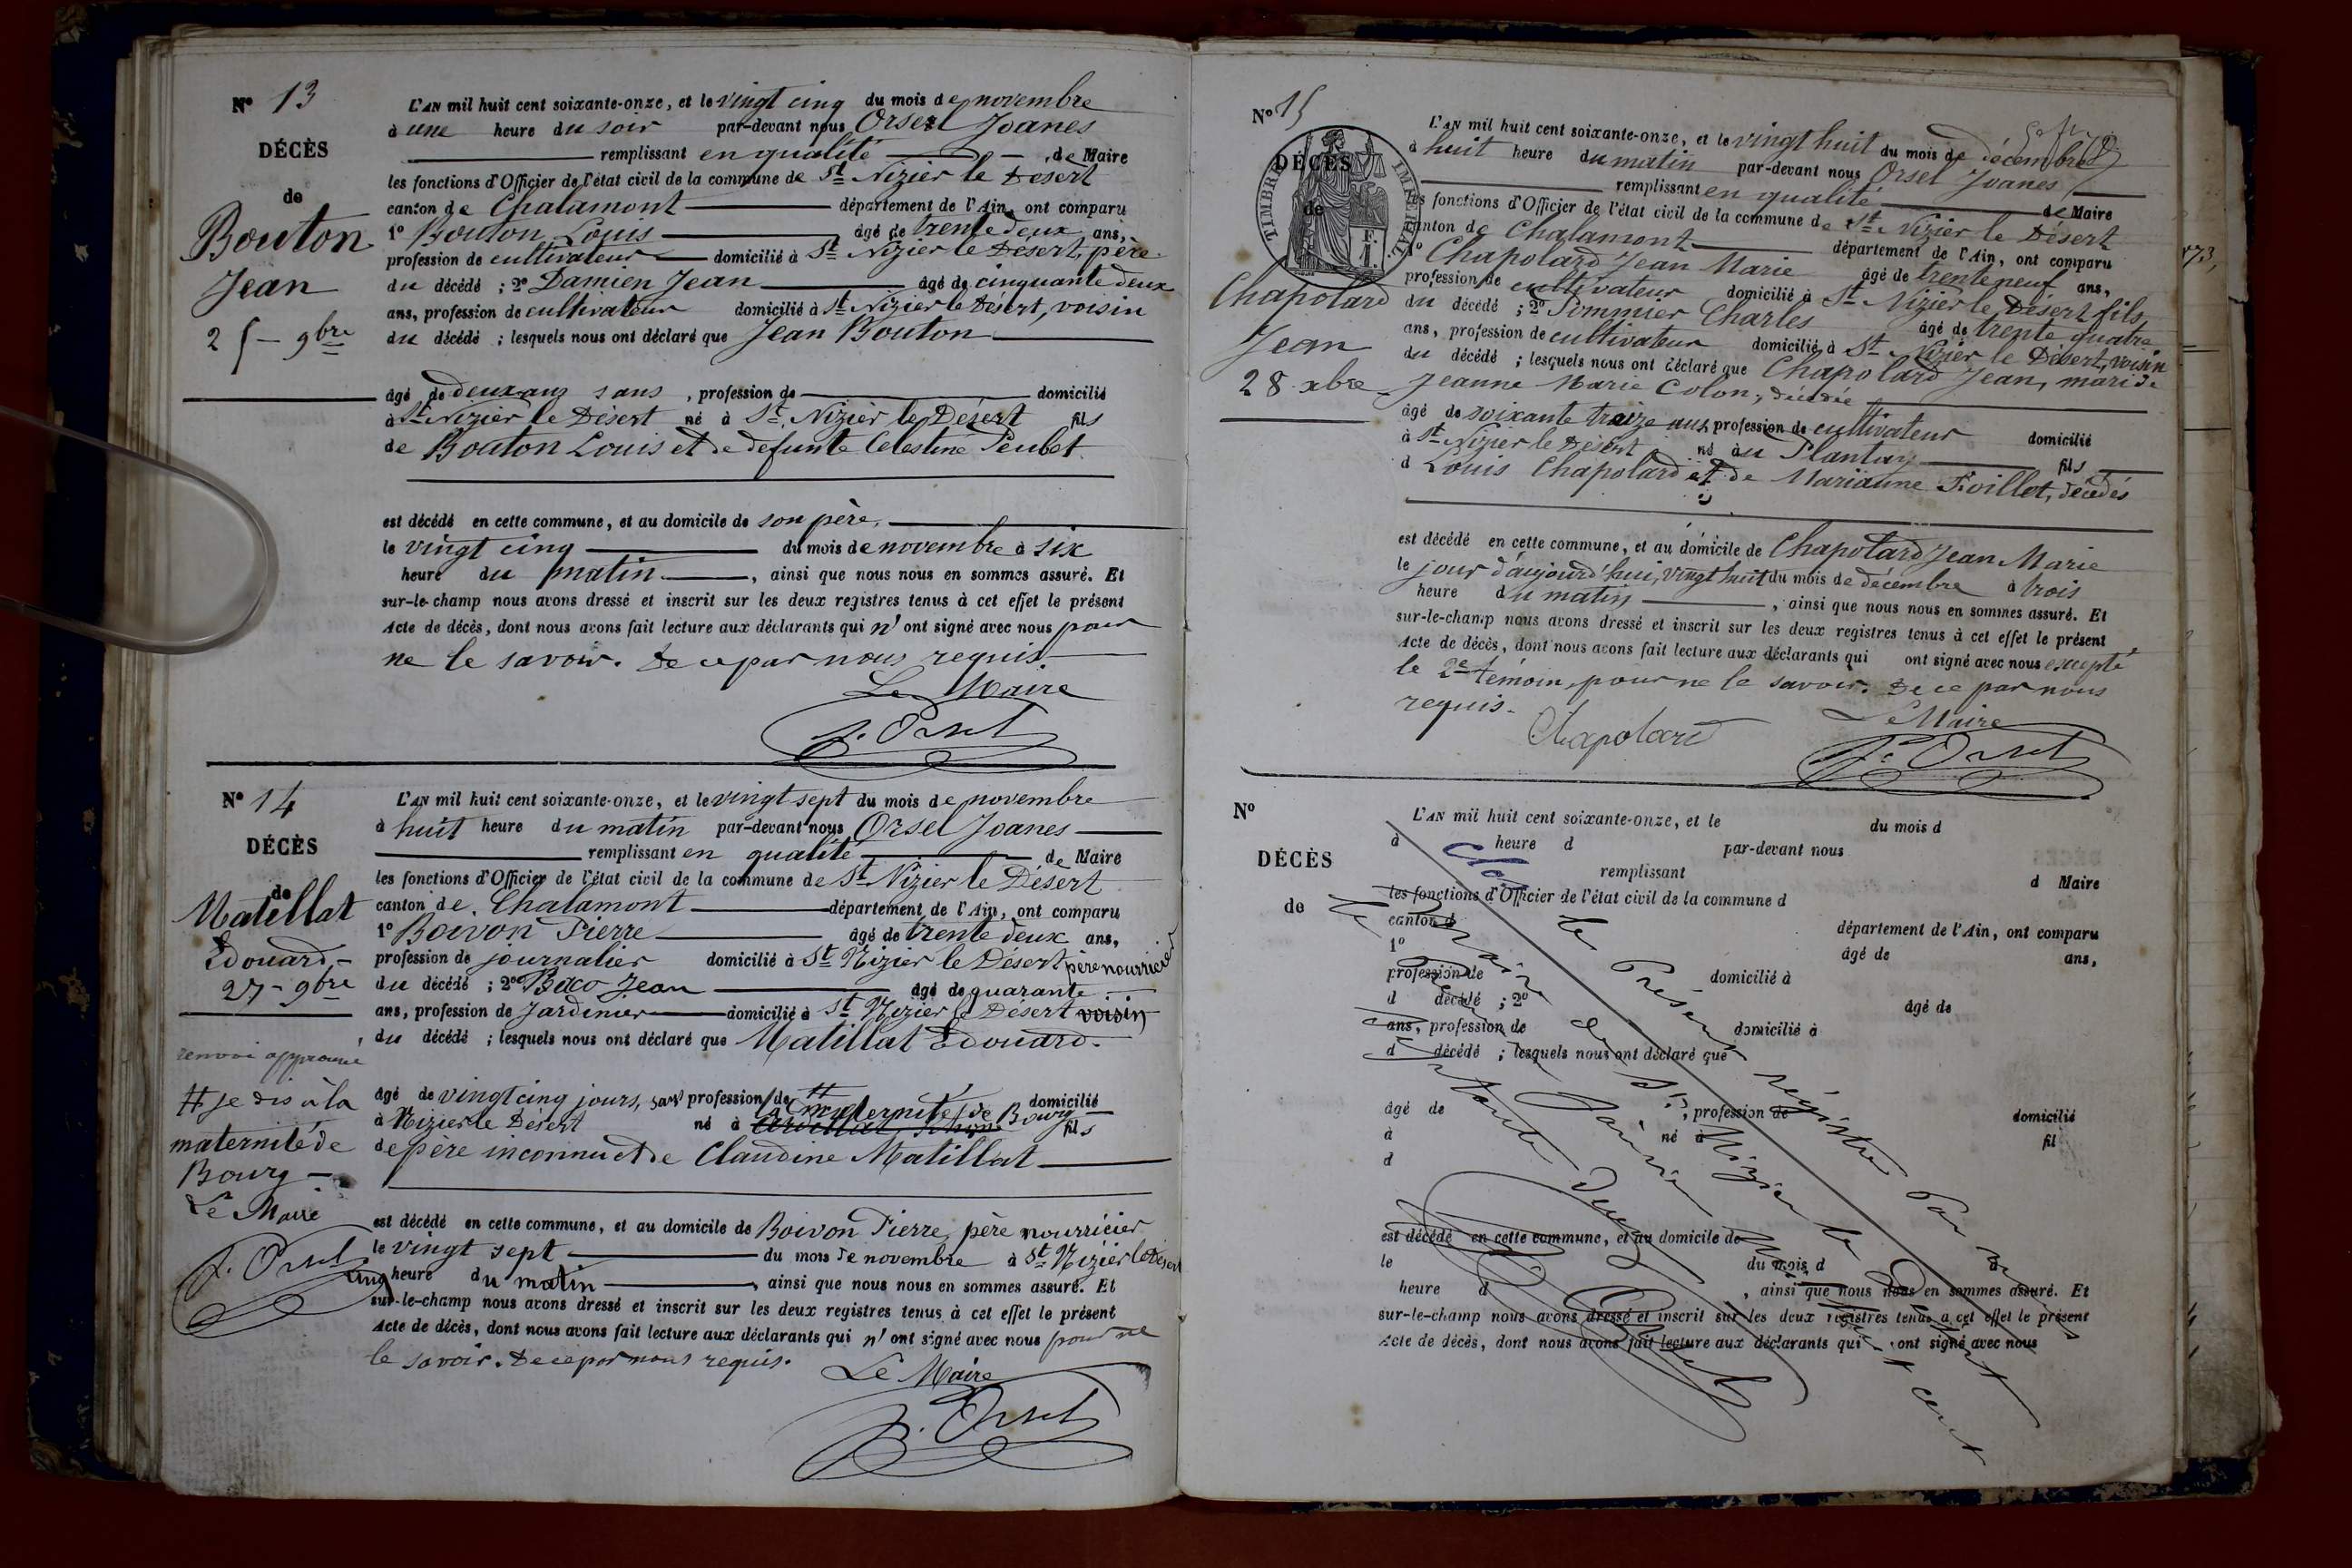 N° 13
DÉCÈS
de
Bouton
Jean
25 - 9bre
L'AN mil huit cent soixante-onze, et le vingt cinq du mois de novembre
à une heure du soir par-devant nous Orsel Joanes
remplissant en qualité de Maire
les fonctions d'Officier de l'état civil de la commune de St Nizier le Désert
canton de Chalamont département de l'Ain, ont comparu
1° Bouton Louis âgé de trente deux ans,
profession de cultivateur domicilié à St Nizier le Désert, père
du décédé ; 2° Damien Jean âgé de cinquante deux
ans, profession de cultivateur domicilié à St Nizier le Désert, voisin
du décédé ; lesquels nous ont déclaré que Jean Bouton
âgé de deux ans sans, profession de domicilié
à St Nizier le Désert né à St Nizier le Désert fils
de Bouton Louis et de defunte Celestine Peubet
est décédé en cette commune, et au domicile de son père.
le vingt cinq du mois de novembre à six
heure du matin, ainsi que nous nous en sommes assuré. Et
sur-le-champ nous avons dressé et inscrit sur les deux registres tenus à cet effet le présent
Acte de décès, dont nous avons fait lecture aux déclarants qui n'ont signé avec nous pour
ne le savoir. De ce par nous requis.
Le Maire
J. Orsel
N° 14
DÉCÈS
de
Matillat
Edouard -
27 - 9bre
L'AN mil huit cent soixante-onze, et le vingt sept du mois de novembre
à huit heure du matin par-devant nous Orsel Joanes
remplissant en qualité de Maire
les fonctions d'Officier de l'état civil de la commune de St Nizier le Désert
canton de Chalamont département de l'Ain, ont comparu
1° Boivon Pierre âgé de trente deux ans,
profession de journalier domicilié à St Nizier le Désert père nourricier
du décédé ; 2° Baco Jean âgé de quarante
ans, profession de Jardinier domicilié à St Nizier le Désert voisin
du décédé ; lesquels nous ont déclaré que Matillat Edouard.
renvoi approuvé
# je dis à la
maternité de
Bourg -
Le Maire
J. Orsel
âgé de vingt cinq jours, sans profession de # domicilié
à Nizier le Désert né à la maternité de Bourg fils
de père inconnu et de Claudine Matillat
est décédé en cette commune, et au domicile de Boivon Pierre, père nourricier
le vingt sept du mois de novembre à St Nizier le Désert
cinq heure du matin, ainsi que nous nous en sommes assuré. Et
sur-le-champ nous avons dressé et inscrit sur les deux registres tenus à cet effet le présent
Acte de décès, dont nous avons fait lecture aux déclarants qui n'ont signé avec nous pour ne
le savoir. De ce par nous requis.
Le Maire
J. Orsel
N° 15
DÉCÈS
de
TIMBRE IMPÉRIAL
Chapolard
Jean
28 xbre
L'AN mil huit cent soixante-onze, et le vingt huit du mois de décembre
à huit heure du matin par-devant nous Orsel Joanes
remplissant en qualité de Maire
les fonctions d'Officier de l'état civil de la commune de St Nizier le Désert
canton de Chalamont département de l'Ain, ont comparu
1° Chapolard Jean Marie âgé de trente neuf ans,
profession de cultivateur domicilié à St Nizier le Désert fils
du décédé ; 2° Pommier Charles âgé de trente quatre
ans, profession de cultivateur domicilié à St Nizier le Désert, voisin
du décédé ; lesquels nous ont déclaré que Chapolard Jean, mari de
Jeanne Marie Colon, décédée
âgé de soixante treize ans profession de cultivateur domicilié
à St Nizier le Désert né au Plantay fils
d Louis Chapolard et de Marianne Foillet, décédés
est décédé en cette commune, et au domicile de Chapolard Jean Marie
le jour d'aujourd'hui, vingt huit du mois de décembre à trois
heure du matin, ainsi que nous nous en sommes assuré. Et
sur-le-champ nous avons dressé et inscrit sur les deux registres tenus à cet effet le présent
Acte de décès, dont nous avons fait lecture aux déclarants qui ont signé avec nous excepté
le 2e témoin, pour ne le savoir. De ce par nous
requis.
Chapolard
Le Maire
J. Orsel
N°
DÉCÈS
de
L'AN mil huit cent soixante-onze, et le du mois d
à heure d par-devant nous
remplissant d Maire
les fonctions d'Officier de l'état civil de la commune d
canton d département de l'Ain, ont comparu
1° âgé de ans,
profession de domicilié à
d décédé ; 2° âgé de
ans, profession de domicilié à
d décédé ; lesquels nous ont déclaré que
âgé de , profession de domicilié
à né à fil
d
est décédé en cette commune, et au domicile de
le du mois d à
heure d , ainsi que nous nous en sommes assuré. Et
sur-le-champ nous avons dressé et inscrit sur les deux registres tenus à cet effet le présent
Acte de décès, dont nous avons fait lecture aux déclarants qui ont signé avec nous
Clos le présent régistre par nous
Maire de St Nizier le Désert
le Janvier Mil huit cent
soixante douze
Orsel